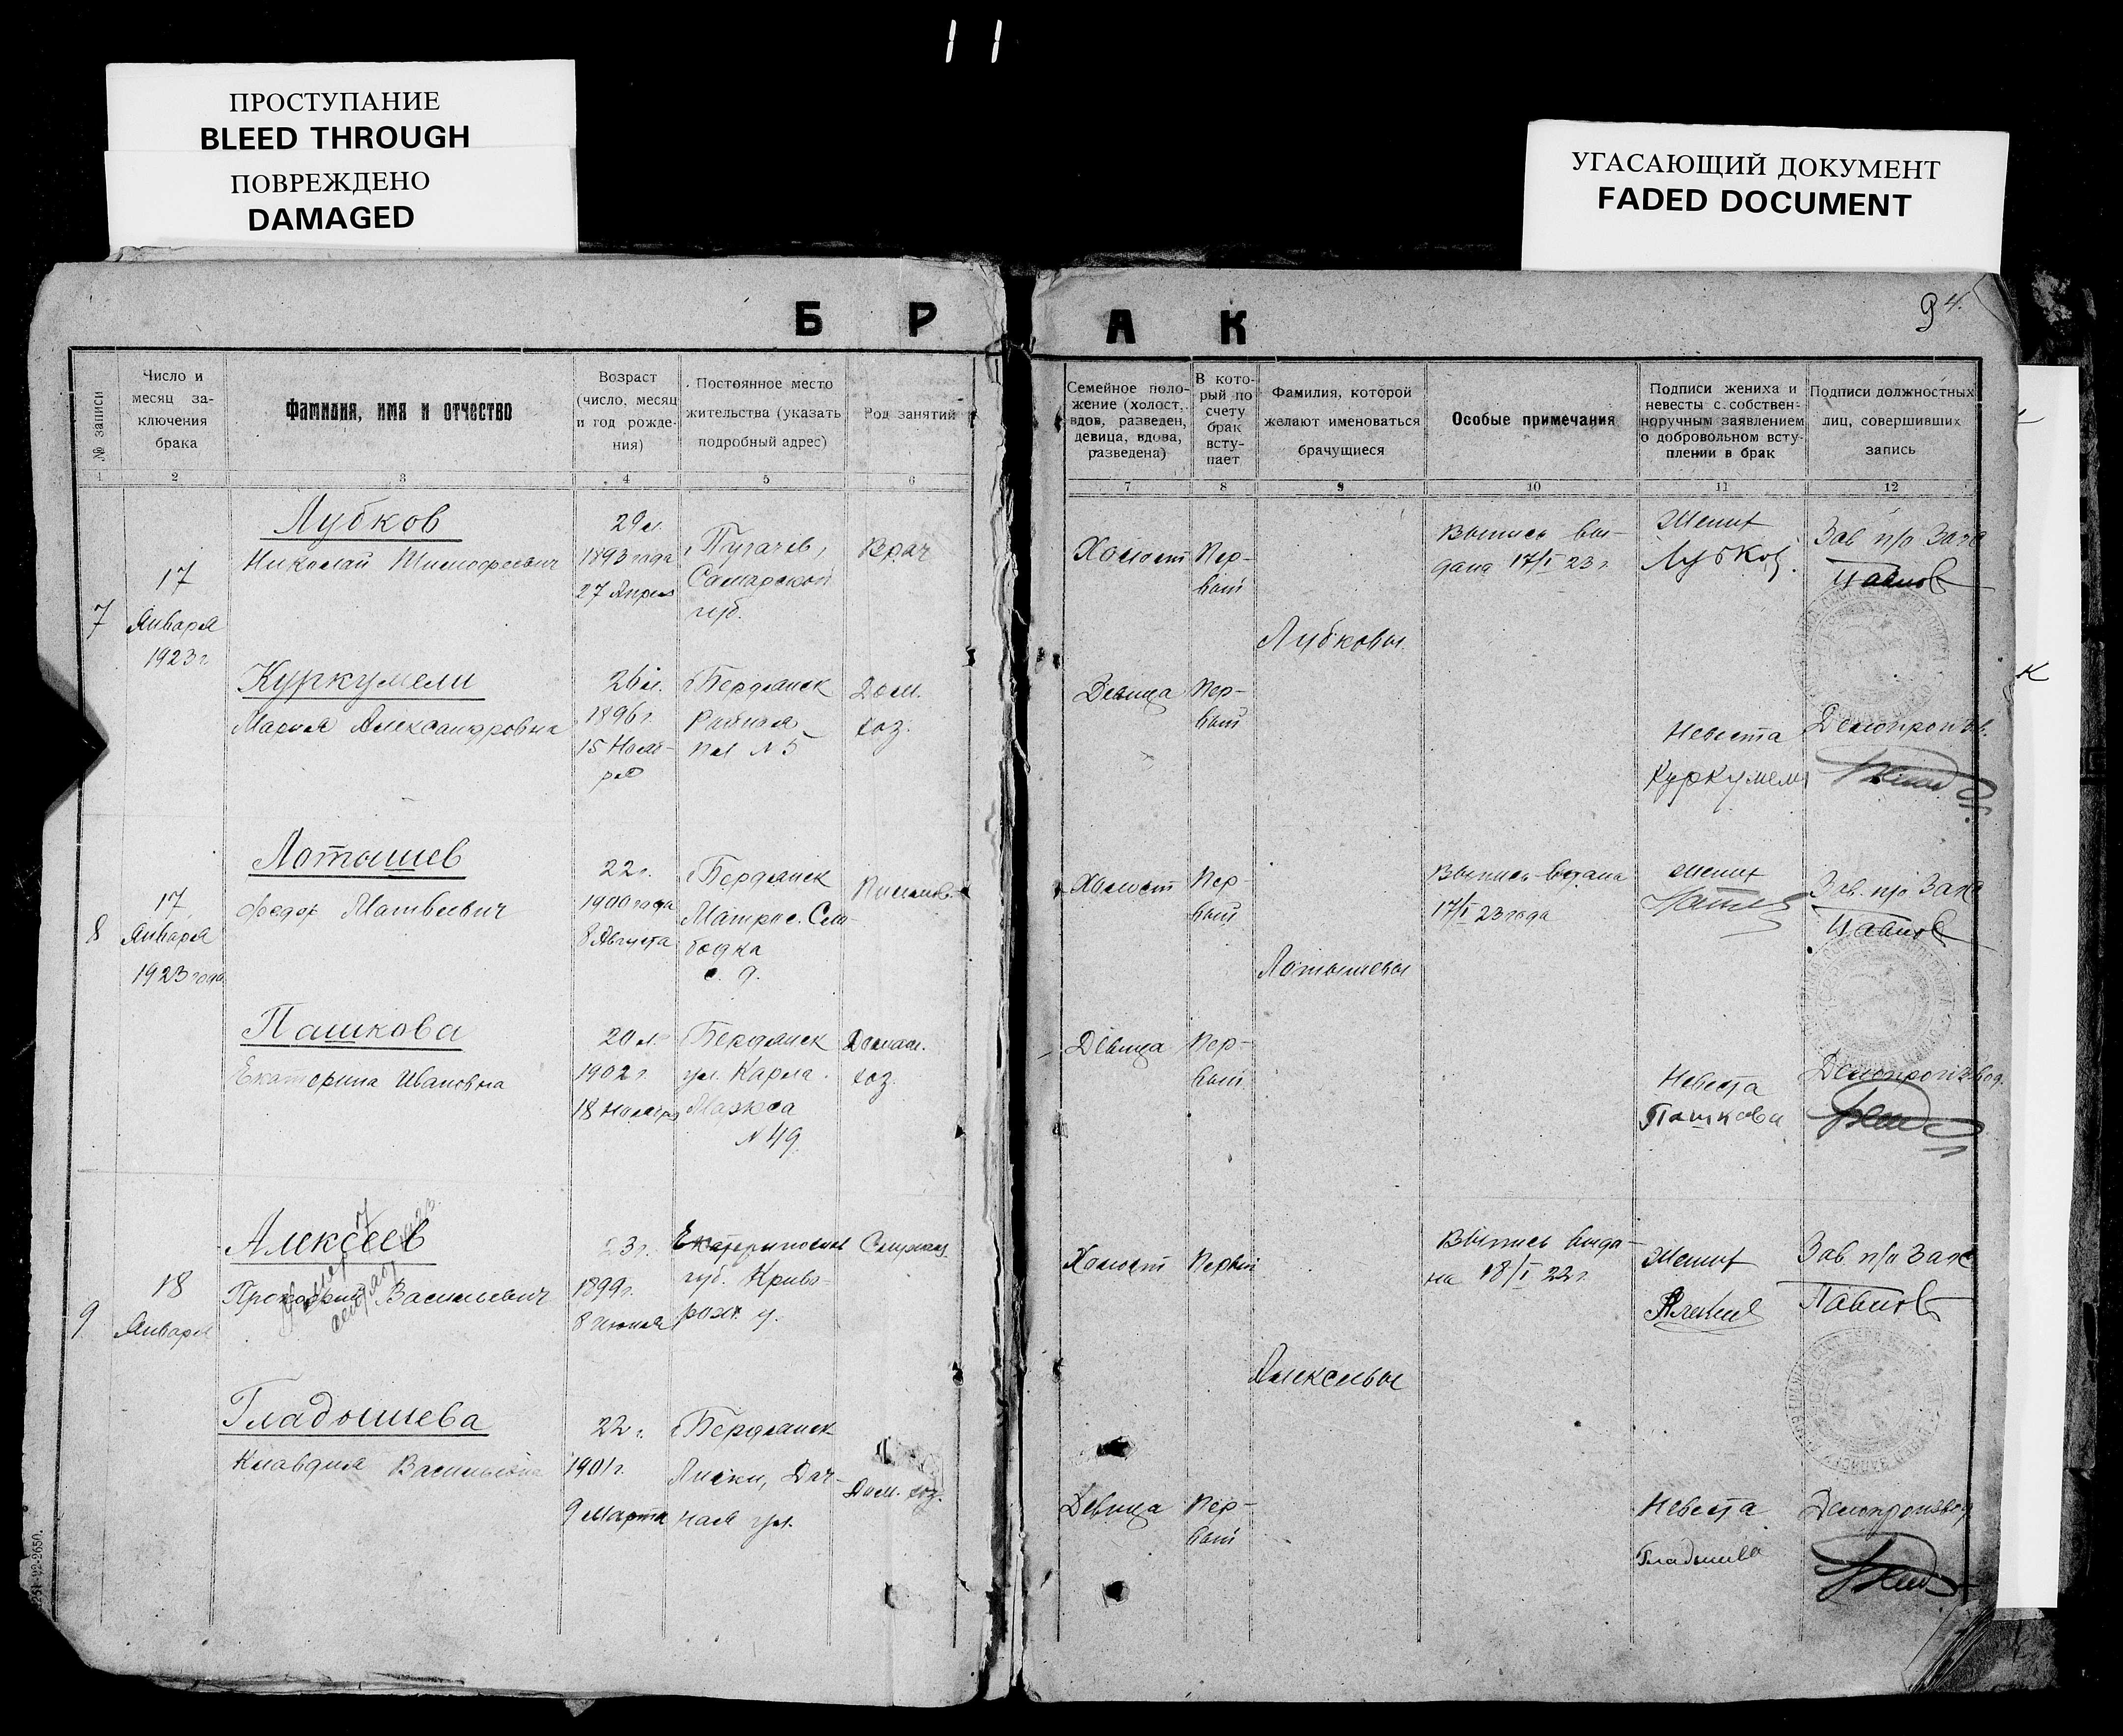 11
ПРОСТУПАНИЕ
BLEED THROUGH
ПОВРЕЖДЕНО
DAMAGED
УГАСАЮЩИЙ ДОКУМЕНТ
FADED DOCUMENT
Б Р А К
94.
№ записи
Число и
месяц за-
ключения
брака
Фамилия, имя и отчество
Возраст
(число, месяц
и год рожде-
ния)
Постоянное место
жительства (указать
подробный адрес)
Род занятий
Семейное поло-
жение (холост,
вдов, разведен,
девица, вдова,
разведена)
В кото-
рый по
счету
брак
всту-
пает
Фамилия, которой
желают именоваться
брачущиеся
Особые примечания
Подписи жениха и
невесты с собствен-
норучным заявлением
о добровольном всту-
плении в брак
Подписи должностных
лиц, совершивших
запись
1 2 3 4 5 6 7 8 9 10 11 12
7
17
Января
1923 г
Лубков
Николай Тимофеевич
29 л.
1893 года
27 Апреля
г. Пугачев,
Самарской
губ.
Врач
Холост
Пер-
вый
Лубковы
Выпись вы-
дана 17/I 23 г.
Жених
Лубков.
Зав. п/о Загс
Павлов
Куркумели
Мария Александровна
26 л.
1896 г.
15 Нояб-
ря
г. Бердянск
пл N 5
Дом.
хоз.
Девица
Пер-
вый
Невеста
Куркумели
Делопроизв.
8
17
Января
1923 года
Лотышев
Федор Матвеевич
22 г.
1900 года
8 Августа
г. Бердянск
Матрос. Сло-
бодка
с. д.
Холост
Пер-
вый
Лотышевы
Выпись выдана
17/I 23 года
Жених
Зав. п/о Загс
Павлов
Пашкова
Екатерина Ивановна
20 л.
1902 г.
18 Ноября
г. Бердянск
ул. Карла
Маркса
N 49
Домаш.
хоз.
Девица
Пер-
вый
Невеста
Пашкова
Делопроизвод.
9
18
Января
Алексеев
Прокофий Васильевич
23 г.
1899 г.
8 Июля
Екатеринослав
губ. Криво-
рож. у.
Служащ.
Холост
Первый
Алексеевы
Выпись выда-
на 18/I 22 г.
Жених
Зав. п/о Загс
Павлов
Гладышева
Клавдия Васильевна
22 г.
1901 г.
9 Марта
г. Бердянск
Лиски, Дач-
ная ул.
Дом. хоз.
Девица
Пер-
вый
Невеста
Гладышева
Делопроизвод